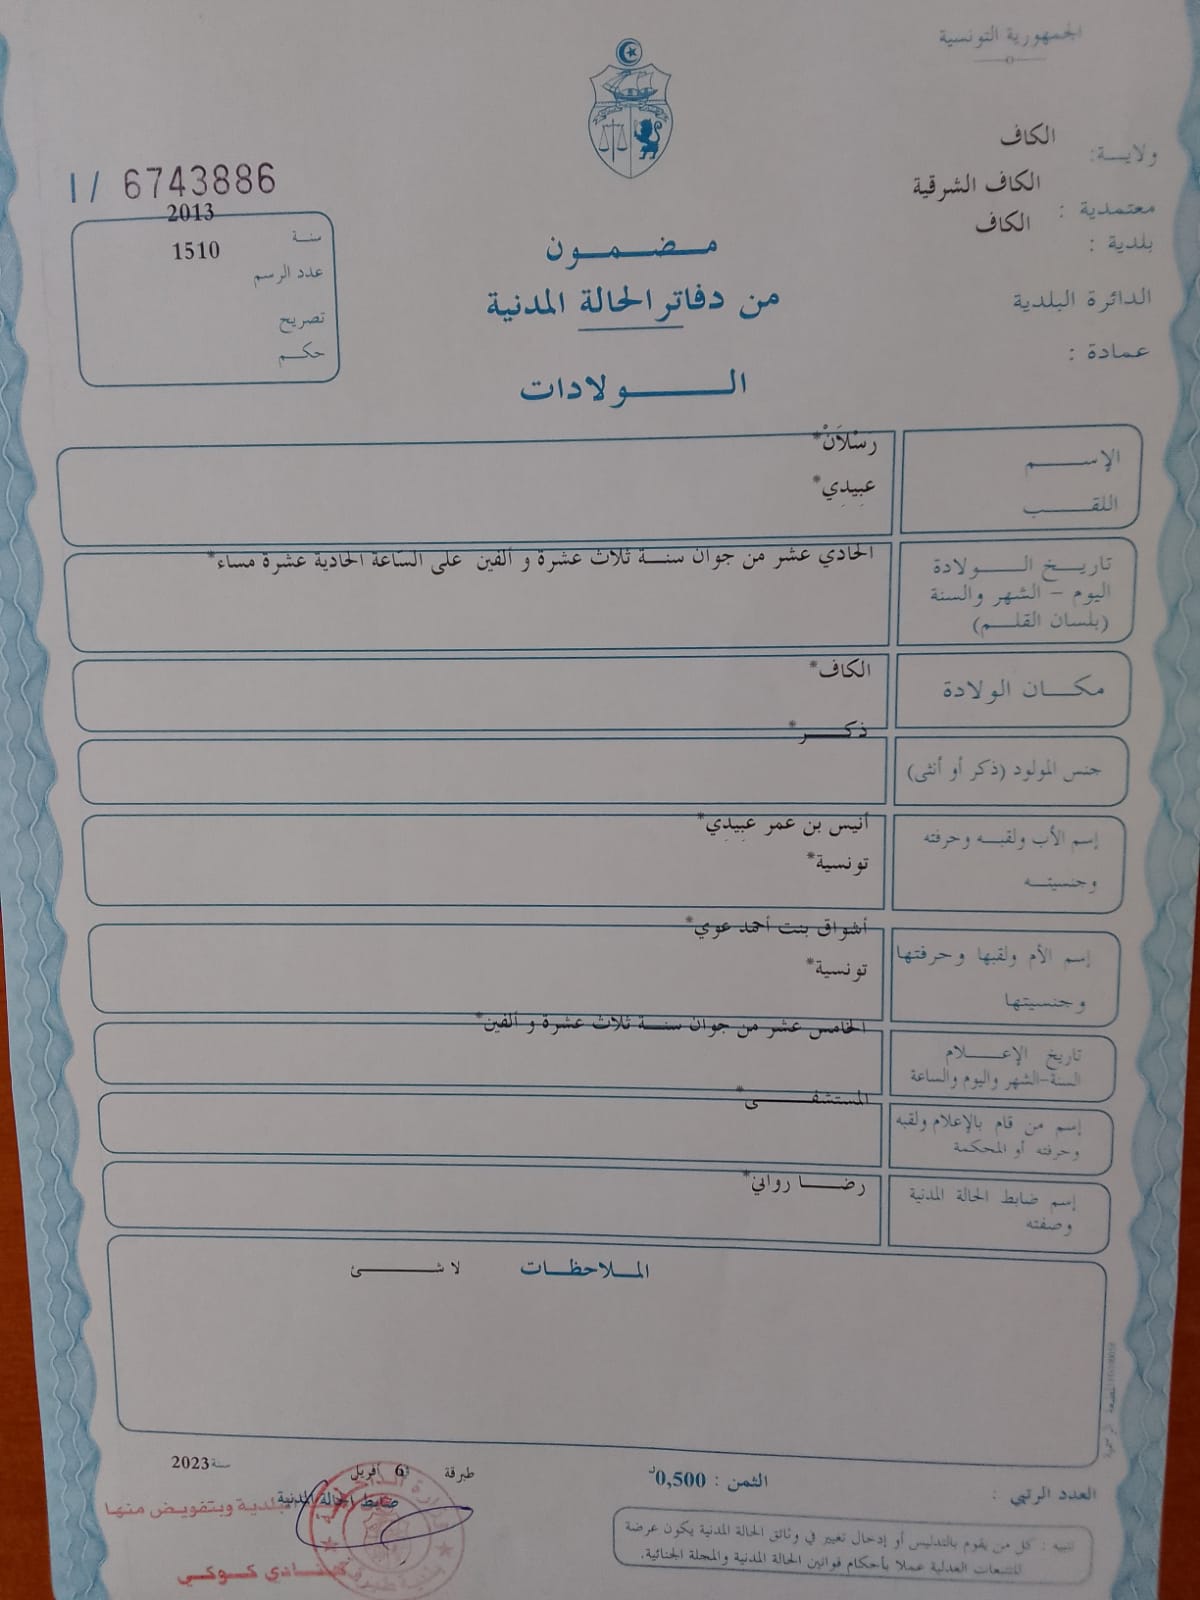 الجمهورية التونسية
ولايــة: الكاف
معتمدية : الكاف الشرقية
بلدية : الكاف
الدائرة البلدية
عمادة :
I / 6743886
سنة 2013
عدد الرسم 1510
تصريح
حكم
مضمون
من دفاتر الحالة المدنية
الولادات
الإسم رَسْلاَنْ*
اللقب عبيدِي*
تاريخ الولادة الحادي عشر من جوان سنة ثلاث عشرة و ألفين على السّاعة الحادية عشرة مساء*
اليوم – الشهر والسنة
(بلسان القلم)
مكان الولادة الكاف*
جنس المولود (ذكر أو أنثى) ذكر*
إسم الأب ولقبه وحرفته أنيس بن عمر عبيدِي*
وجنسيته تونسية*
إسم الأم ولقبها وحرفتها أشواق بنت أحمد عوي*
وجنسيتها تونسية*
تاريخ الإعلام الخامس عشر من جوان سنة ثلاث عشرة و ألفين*
السنة-الشهر واليوم والساعة
إسم من قام بالإعلام ولقبه المستشفى*
وحرفته أو المحكمة
إسم ضابط الحالة المدنية رضا رواني*
وصفته
الملاحظات لا شئ
العدد الرتبي :
الثمن : 0,500د
طبرقة 6 أفريل سنة 2023
ضابط الحالة المدنية
البلدية وبتفويض منها
كوكي
تنبيه : كل من يقوم بالتدليس أو إدخال تغيير في وثائق الحالة المدنية يكون عرضة
للتتبعات العدلية عملا بأحكام قوانين الحالة المدنية والمجلة الجنائية.